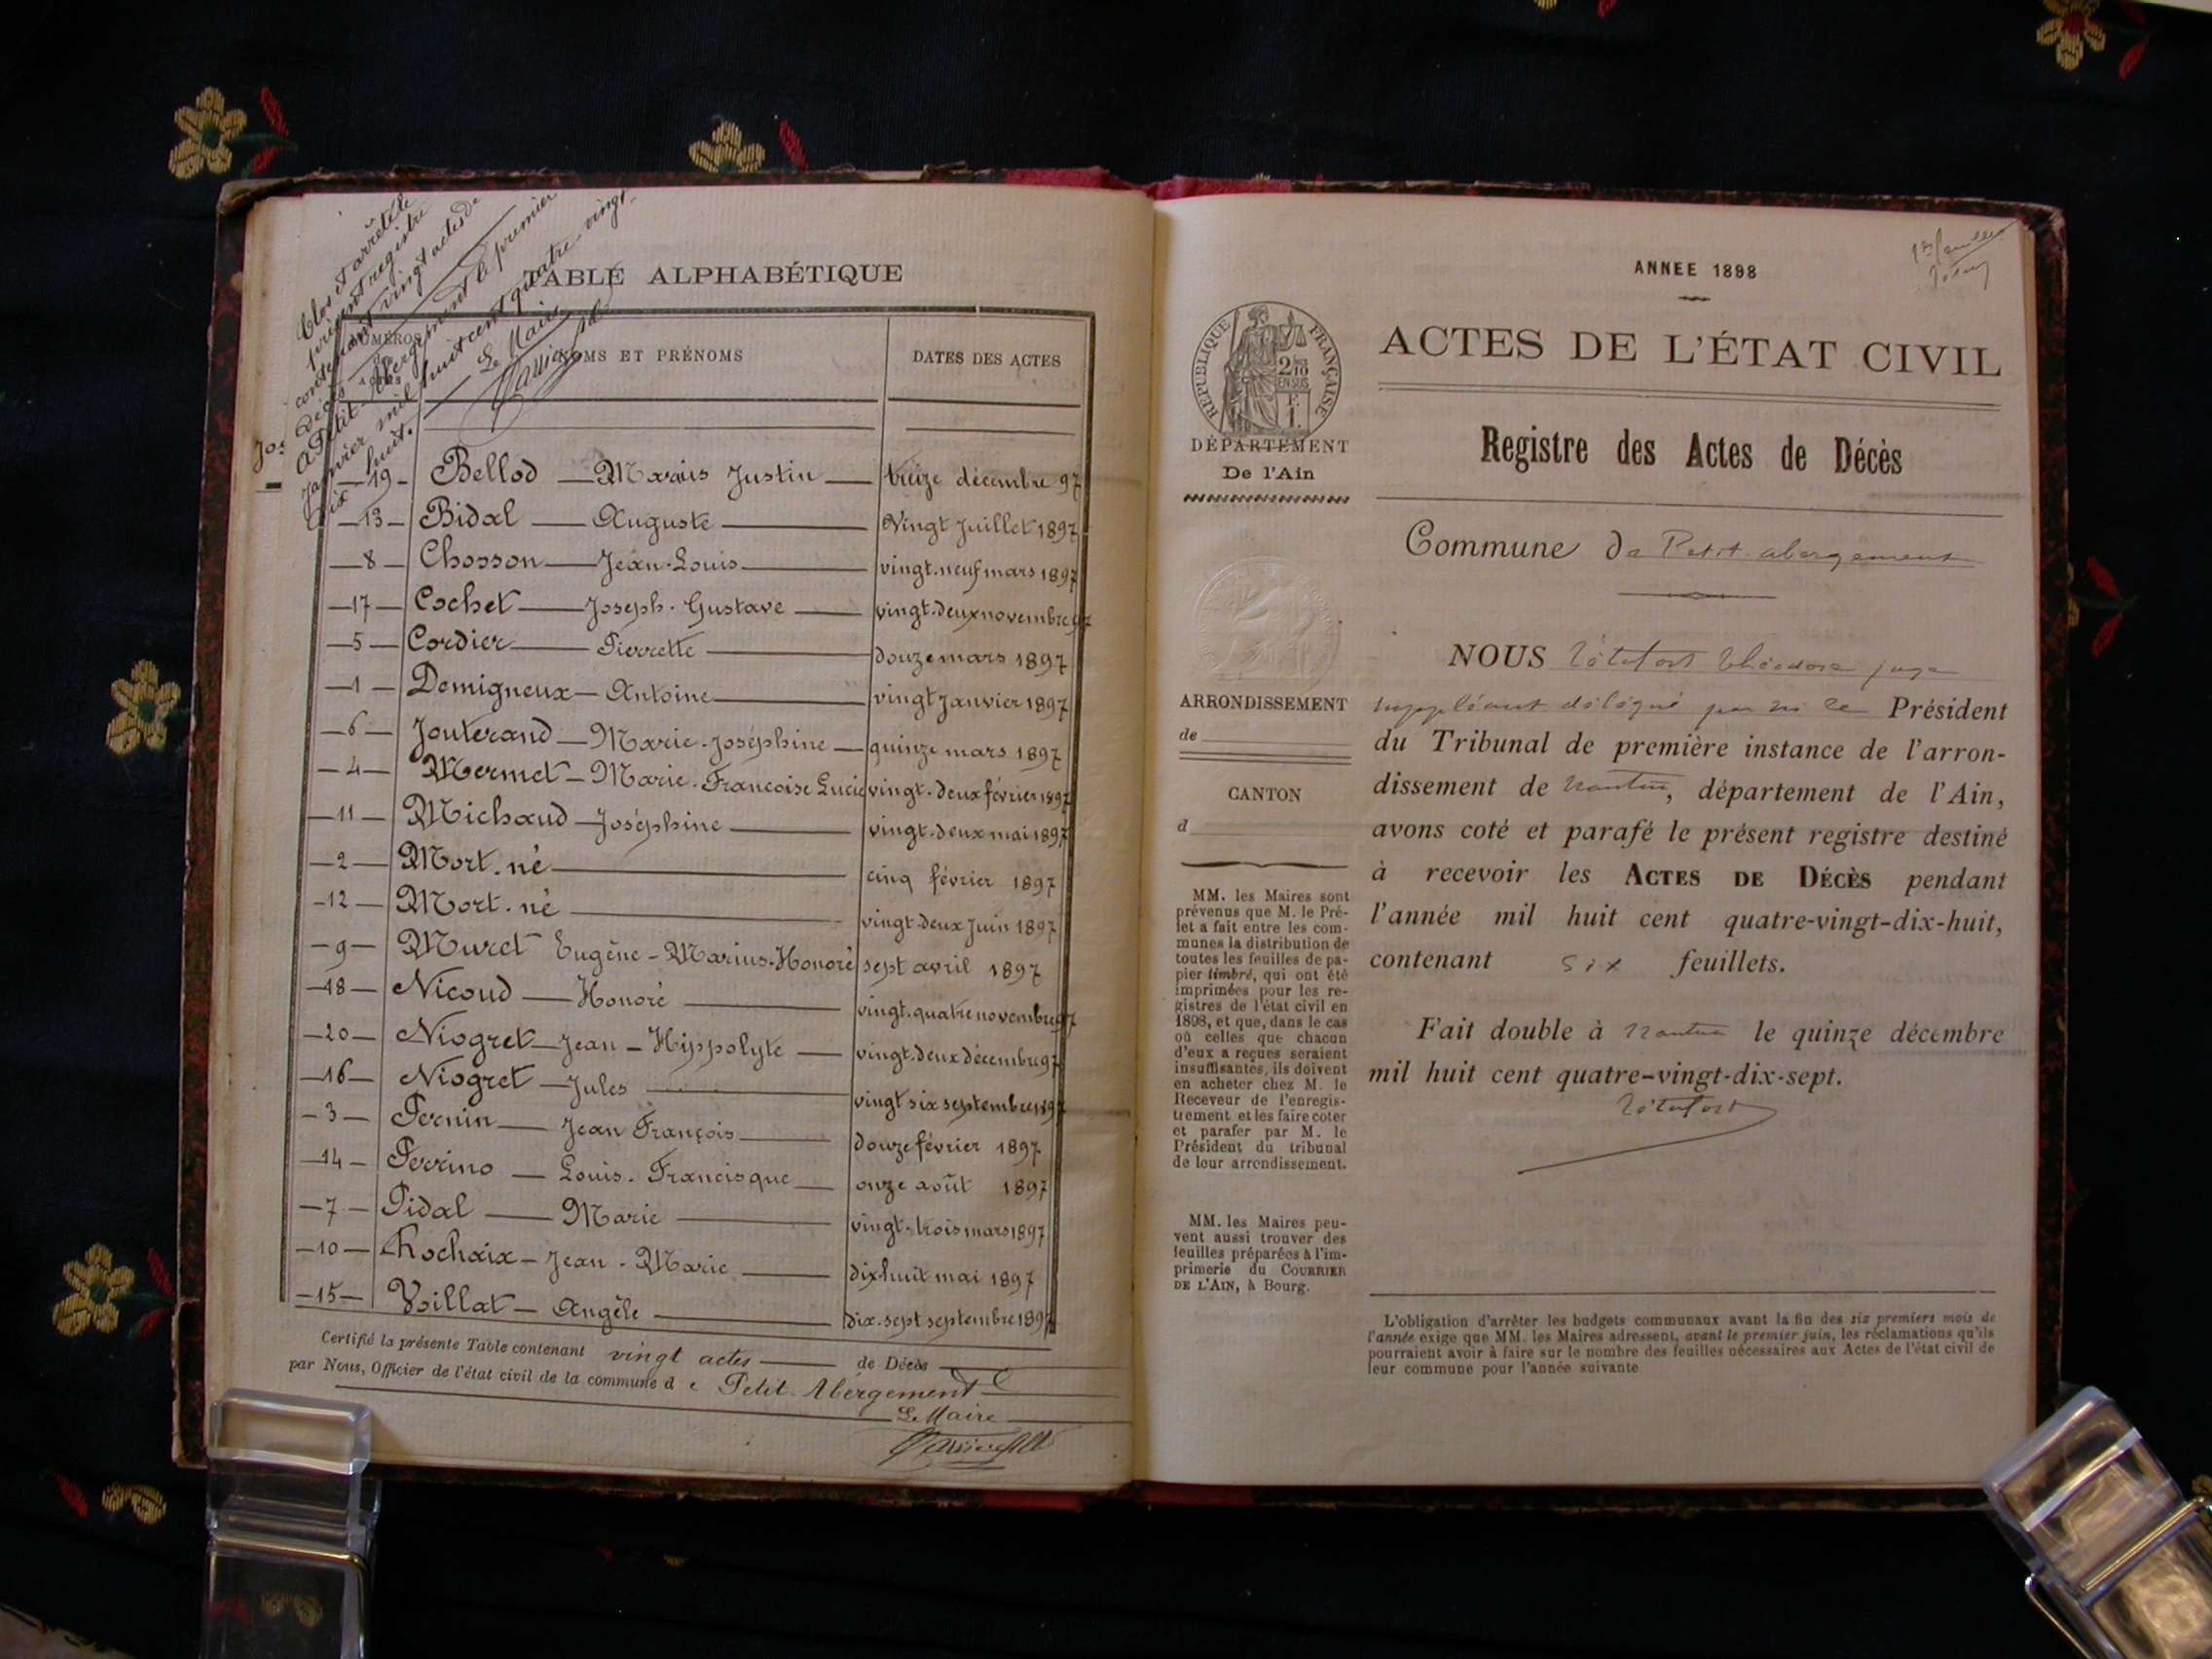 Clos et arrêté le
présent registre
contenant vingt actes de
décès
A Petit-Abergement le premier
janvier mil huit cent quatre-vingt-
dix huit.
Le Maire
TABLE ALPHABÉTIQUE
NUMÉROS
NOMS ET PRÉNOMS
DATES DES ACTES
—19— Bellod — Marius Justin — treize décembre 97
—13— Bidal — Auguste — Vingt Juillet 1897
—8— Chosson — Jean-Louis — vingt-neuf mars 1897
—17— Cochet — Joseph-Gustave — vingt-deux novembre 97
—5— Cordier — Pierrette — douze mars 1897
—1— Demigneux — Antoine — vingt Janvier 1897
—6— Jouterand — Marie-Joséphine — quinze mars 1897
—4— Mermet — Marie-Francoise Lucie vingt-deux février 1897
—11— Michaud — Joséphine — vingt-deux mai 1897
—2— Mort-né — cinq février 1897
—12— Mort-né — vingt-deux Juin 1897
—9— Muret Eugène-Marius-Honoré sept avril 1897
—18— Nicoud — Honoré — vingt-quatre novembre 97
—20— Niogret — Jean-Hippolyte — vingt-deux décembre 97
—16— Niogret — Jules — vingt six septembre 1897
—3— Pernin — Jean François — douze février 1897
—14— Perrino — Louis-Francisque — onze août 1897
—7— Pidal — Marie — vingt-trois mars 1897
—10— Rochaix — Jean-Marie — dix-huit mai 1897
—15— Voillat — Angèle — dix-sept septembre 1897
Certifié la présente Table contenant vingt actes — de Décès
par Nous, Officier de l'état civil de la commune de Petit-Abergement
Le Maire
ANNEE 1898
RÉPUBLIQUE FRANÇAISE
2/10
EN SUS
DÉPARTEMENT
De l'Ain
ARRONDISSEMENT
de
CANTON
d
MM. les Maires sont
prévenus que M. le Pré-
fet a fait entre les com-
munes la distribution de
toutes les feuilles de pa-
pier timbré, qui ont été
imprimées pour les re-
gistres de l'état civil en
1898, et que, dans le cas
où celles que chacun
d'eux a reçues seraient
insuffisantes, ils doivent
en acheter chez M. le
Receveur de l'enregis-
trement et les faire coter
et parafer par M. le
Président du tribunal
de leur arrondissement.
MM. les Maires peu-
vent aussi trouver des
feuilles préparées à l'im-
primerie du COURRIER
DE L'AIN, à Bourg.
ACTES DE L'ÉTAT CIVIL
Registre des Actes de Décès
Commune de Petit-abergement
NOUS Théodore juge
suppléant délégué par M le Président
du Tribunal de première instance de l'arron-
dissement de Nantua, département de l'Ain,
avons coté et parafé le présent registre destiné
à recevoir les ACTES DE DÉCÈS pendant
l'année mil huit cent quatre-vingt-dix-huit,
contenant six feuillets.
Fait double à Nantua le quinze décembre
mil huit cent quatre-vingt-dix-sept.
L'obligation d'arrêter les budgets communaux avant la fin des six premiers mois de
l'année exige que MM. les Maires adressent, avant le premier juin, les réclamations qu'ils
pourraient avoir à faire sur le nombre des feuilles nécessaires aux Actes de l'état civil de
leur commune pour l'année suivante